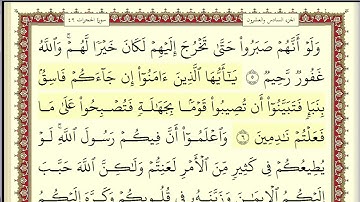 سورة الحجرات ٤٩ الجزء السادس والعشرون
وَلَوْ أَنَّهُمْ صَبَرُوا۟ حَتَّىٰ تَخْرُجَ إِلَيْهِمْ لَكَانَ خَيْرًا لَّهُمْ ۚ وَٱللَّهُ
غَفُورٌ رَّحِيمٌ ٥ يَـٰٓأَيُّهَا ٱلَّذِينَ ءَامَنُوٓا۟ إِن جَآءَكُمْ فَاسِقٌۢ
بِنَبَإٍ فَتَبَيَّنُوٓا۟ أَن تُصِيبُوا۟ قَوْمًۢا بِجَهَـٰلَةٍ فَتُصْبِحُوا۟ عَلَىٰ مَا
فَعَلْتُمْ نَـٰدِمِينَ ٦ وَٱعْلَمُوٓا۟ أَنَّ فِيكُمْ رَسُولَ ٱللَّهِ ۚ لَوْ
يُطِيعُكُمْ فِى كَثِيرٍ مِّنَ ٱلْأَمْرِ لَعَنِتُّمْ وَلَـٰكِنَّ ٱللَّهَ حَبَّبَ
إِلَيْكُمُ ٱلْإِيمَـٰنَ وَزَيَّنَهُۥ فِى قُلُوبِكُمْ وَكَرَّهَ إِلَيْكُمُ